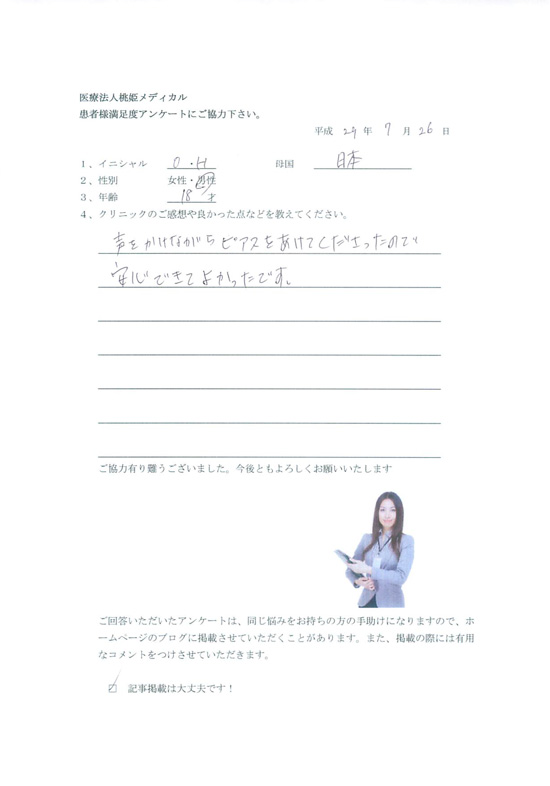 医療法人桃姫メディカル
患者様満足度アンケートにご協力下さい。
平成 29 年 7 月 26 日
1、イニシャル O・H 母国 日本
2、性別 女性・男性
3、年齢 18 才
4、クリニックのご感想や良かった点などを教えてください。
声をかけながらピアスをあけてくださったので
安心できてよかったです。
ご協力有り難うございました。今後ともよろしくお願いいたします
ご回答いただいたアンケートは、同じ悩みをお持ちの方の手助けになりますので、ホ
ームページのブログに掲載させていただくことがあります。また、掲載の際には有用
なコメントをつけさせていただきます。
記事掲載は大丈夫です！